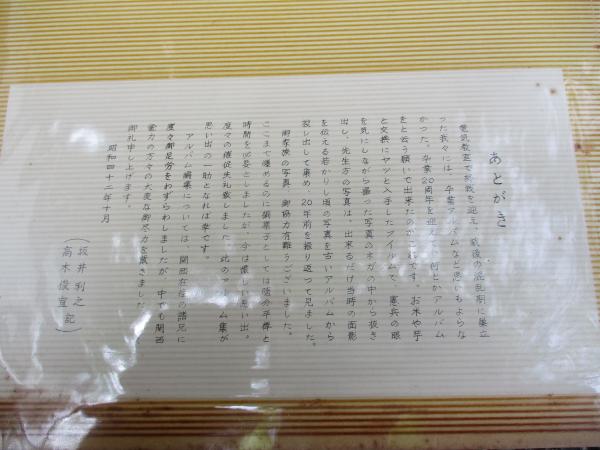 あとがき
電気教室で終戦を迎え、戦後の混乱期に巣立
った我々には、卒業アルバムなど思いもよらな
かった。卒業20周年を迎え 何とかアルバム
をと云う願いで出来たのがこれです。お米や芋
と交換にヤッと入手したフイルムで、憲兵の眼
を気にしながら撮った写真のネガの中から抜き
出し、先生方の写真は、出来るだけ当時の面影
を伝える若かりし頃の写真を古いアルバムから
探し出して集め、20年前を振り返って見ました。
御家族の写真、御協力有難うございました。
ここまで纏めるのに編集子としては随分手間と
時間を必要としましたが、今は懐しい思い出。
度々の催促失礼致しました。此のアルバム集が
思い出の一助となれば幸です。
アルバム編集については、関西在住の諸兄に
度々御足労をわずらわしましたが、中でも関西
電力の方々の大変な御尽力を戴きました
御礼申し上げます。
昭和四十二年十月
（坂井利之
高木俊宜 記）